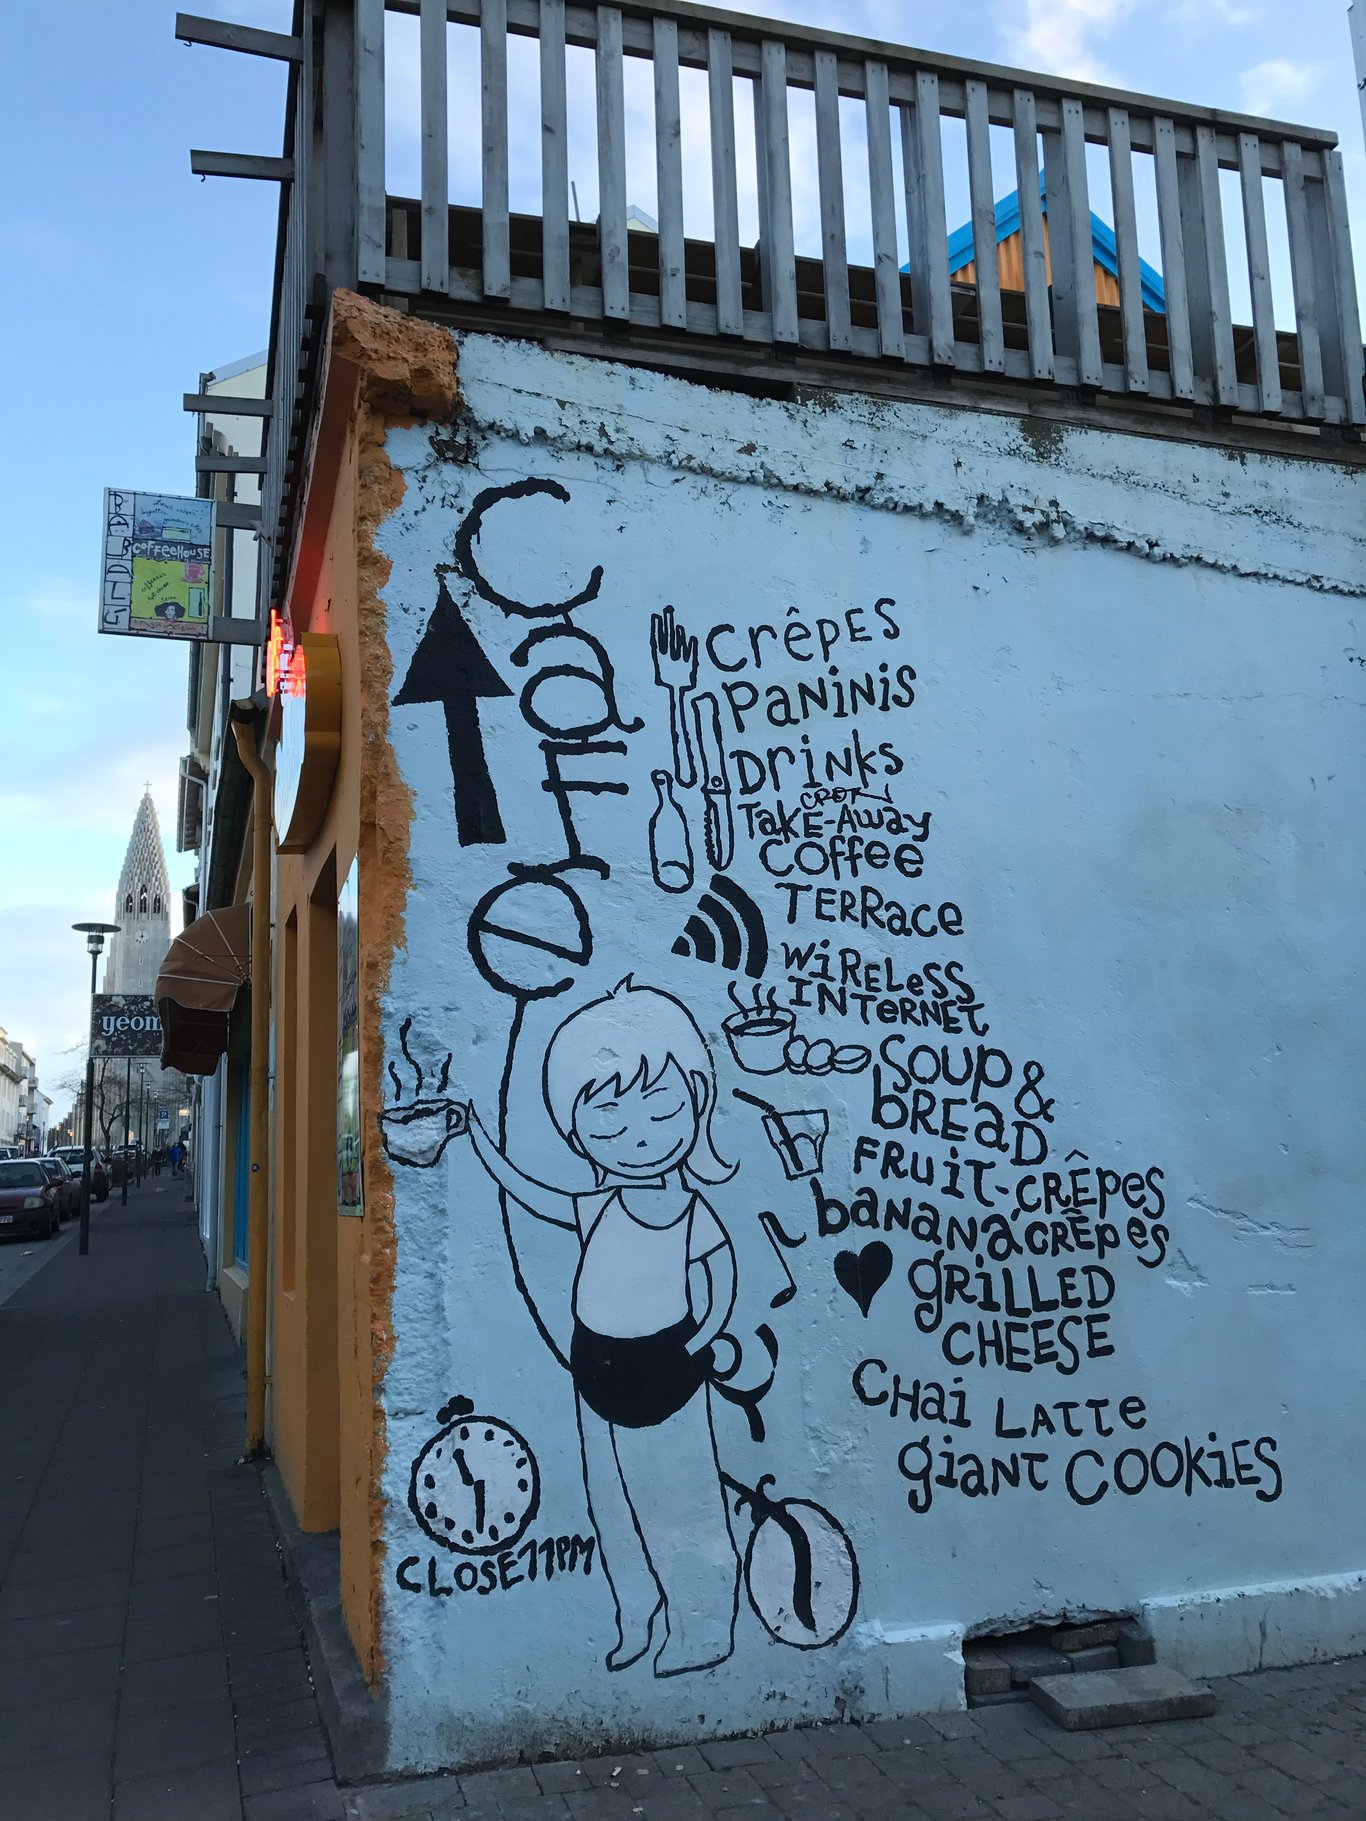 BABALÚ
COFFEEHOUSE
yeom
CaFé
CrêPES
PaNiNiS
DriNks
TakE-Away
Coffee
TERRace
WiReLeSS
INTeRNET
SOUP &
bREaD
FRUiT-CRÊPeS
baNaNa CRÊPeS
gRiLLED
CHEESE
CHai LaTTe
giaNT COOKiES
CLOSE 11PM